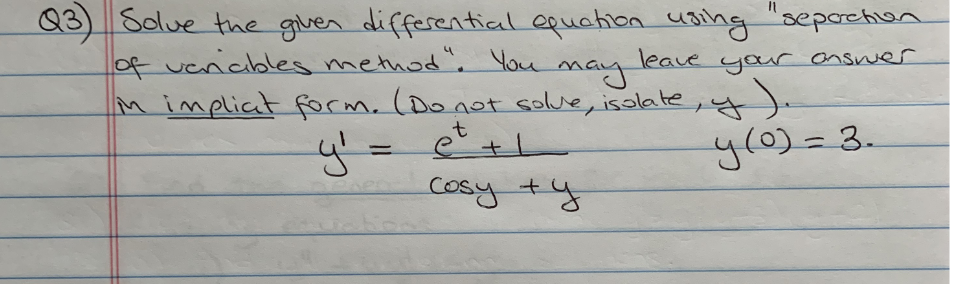 Q3) Solve the given differential equation using "seperation
of variables method". You may leave your answer
in implicit form. (Do not solve, isolate, y).
y' = e^t + 1 / cosy + y   y(0) = 3.